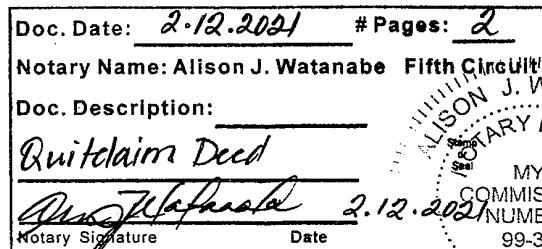 Doc. Date: 2.12.2021 # Pages: 2
Notary Name: Alison J. Watanabe Fifth Circuit
Doc. Description:
Quitclaim Deed
2.12.2021
Notary Signature Date
ALISON J. W
NOTARY
Stamp
Seal
MY
COMMIS
NUMBE
99-3